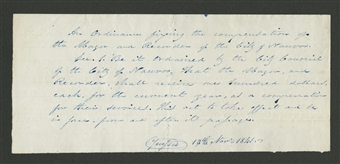 An Ordinance fixing the compensation of
the Mayor and Recorder of the City of Nauvoo.
Sec. 1. Be it Ordained by the City Council
of the City of Nauvoo, that the Mayor, and
Recorder, shall receive one hundred dollars,
each, for the current year, as a compensation
for their services, this act to take effect and be
in force, from and after its passage.
Passed 13th Nov. 1841.